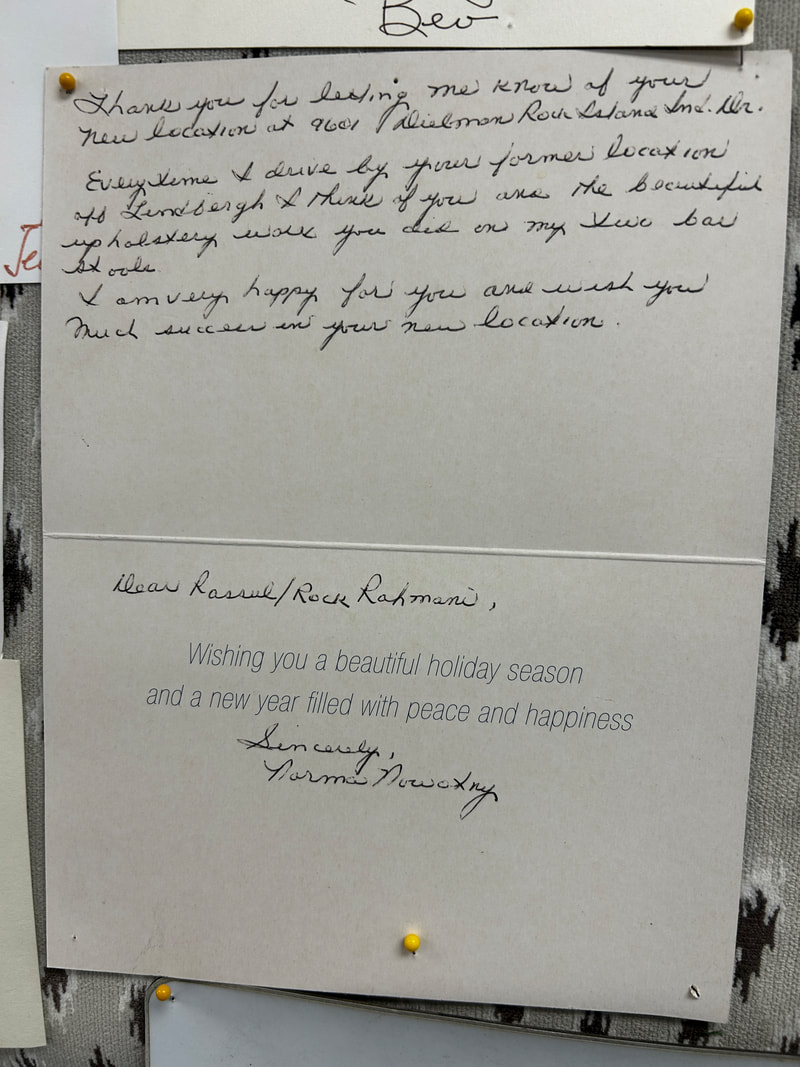 Bev
Thank you for letting me know of your
new location at 9601 Dielman Rock Island Ind. Dr.
Everytime I drive by your former location
off Lindbergh I think of you and the beautiful
upholstery work you did on my two bar
stools.
I am very happy for you and wish you
much success in your new location.
Dear Rassul/Rock Rahmani,
Wishing you a beautiful holiday season
and a new year filled with peace and happiness
Sincerely,
Norma Nowotny